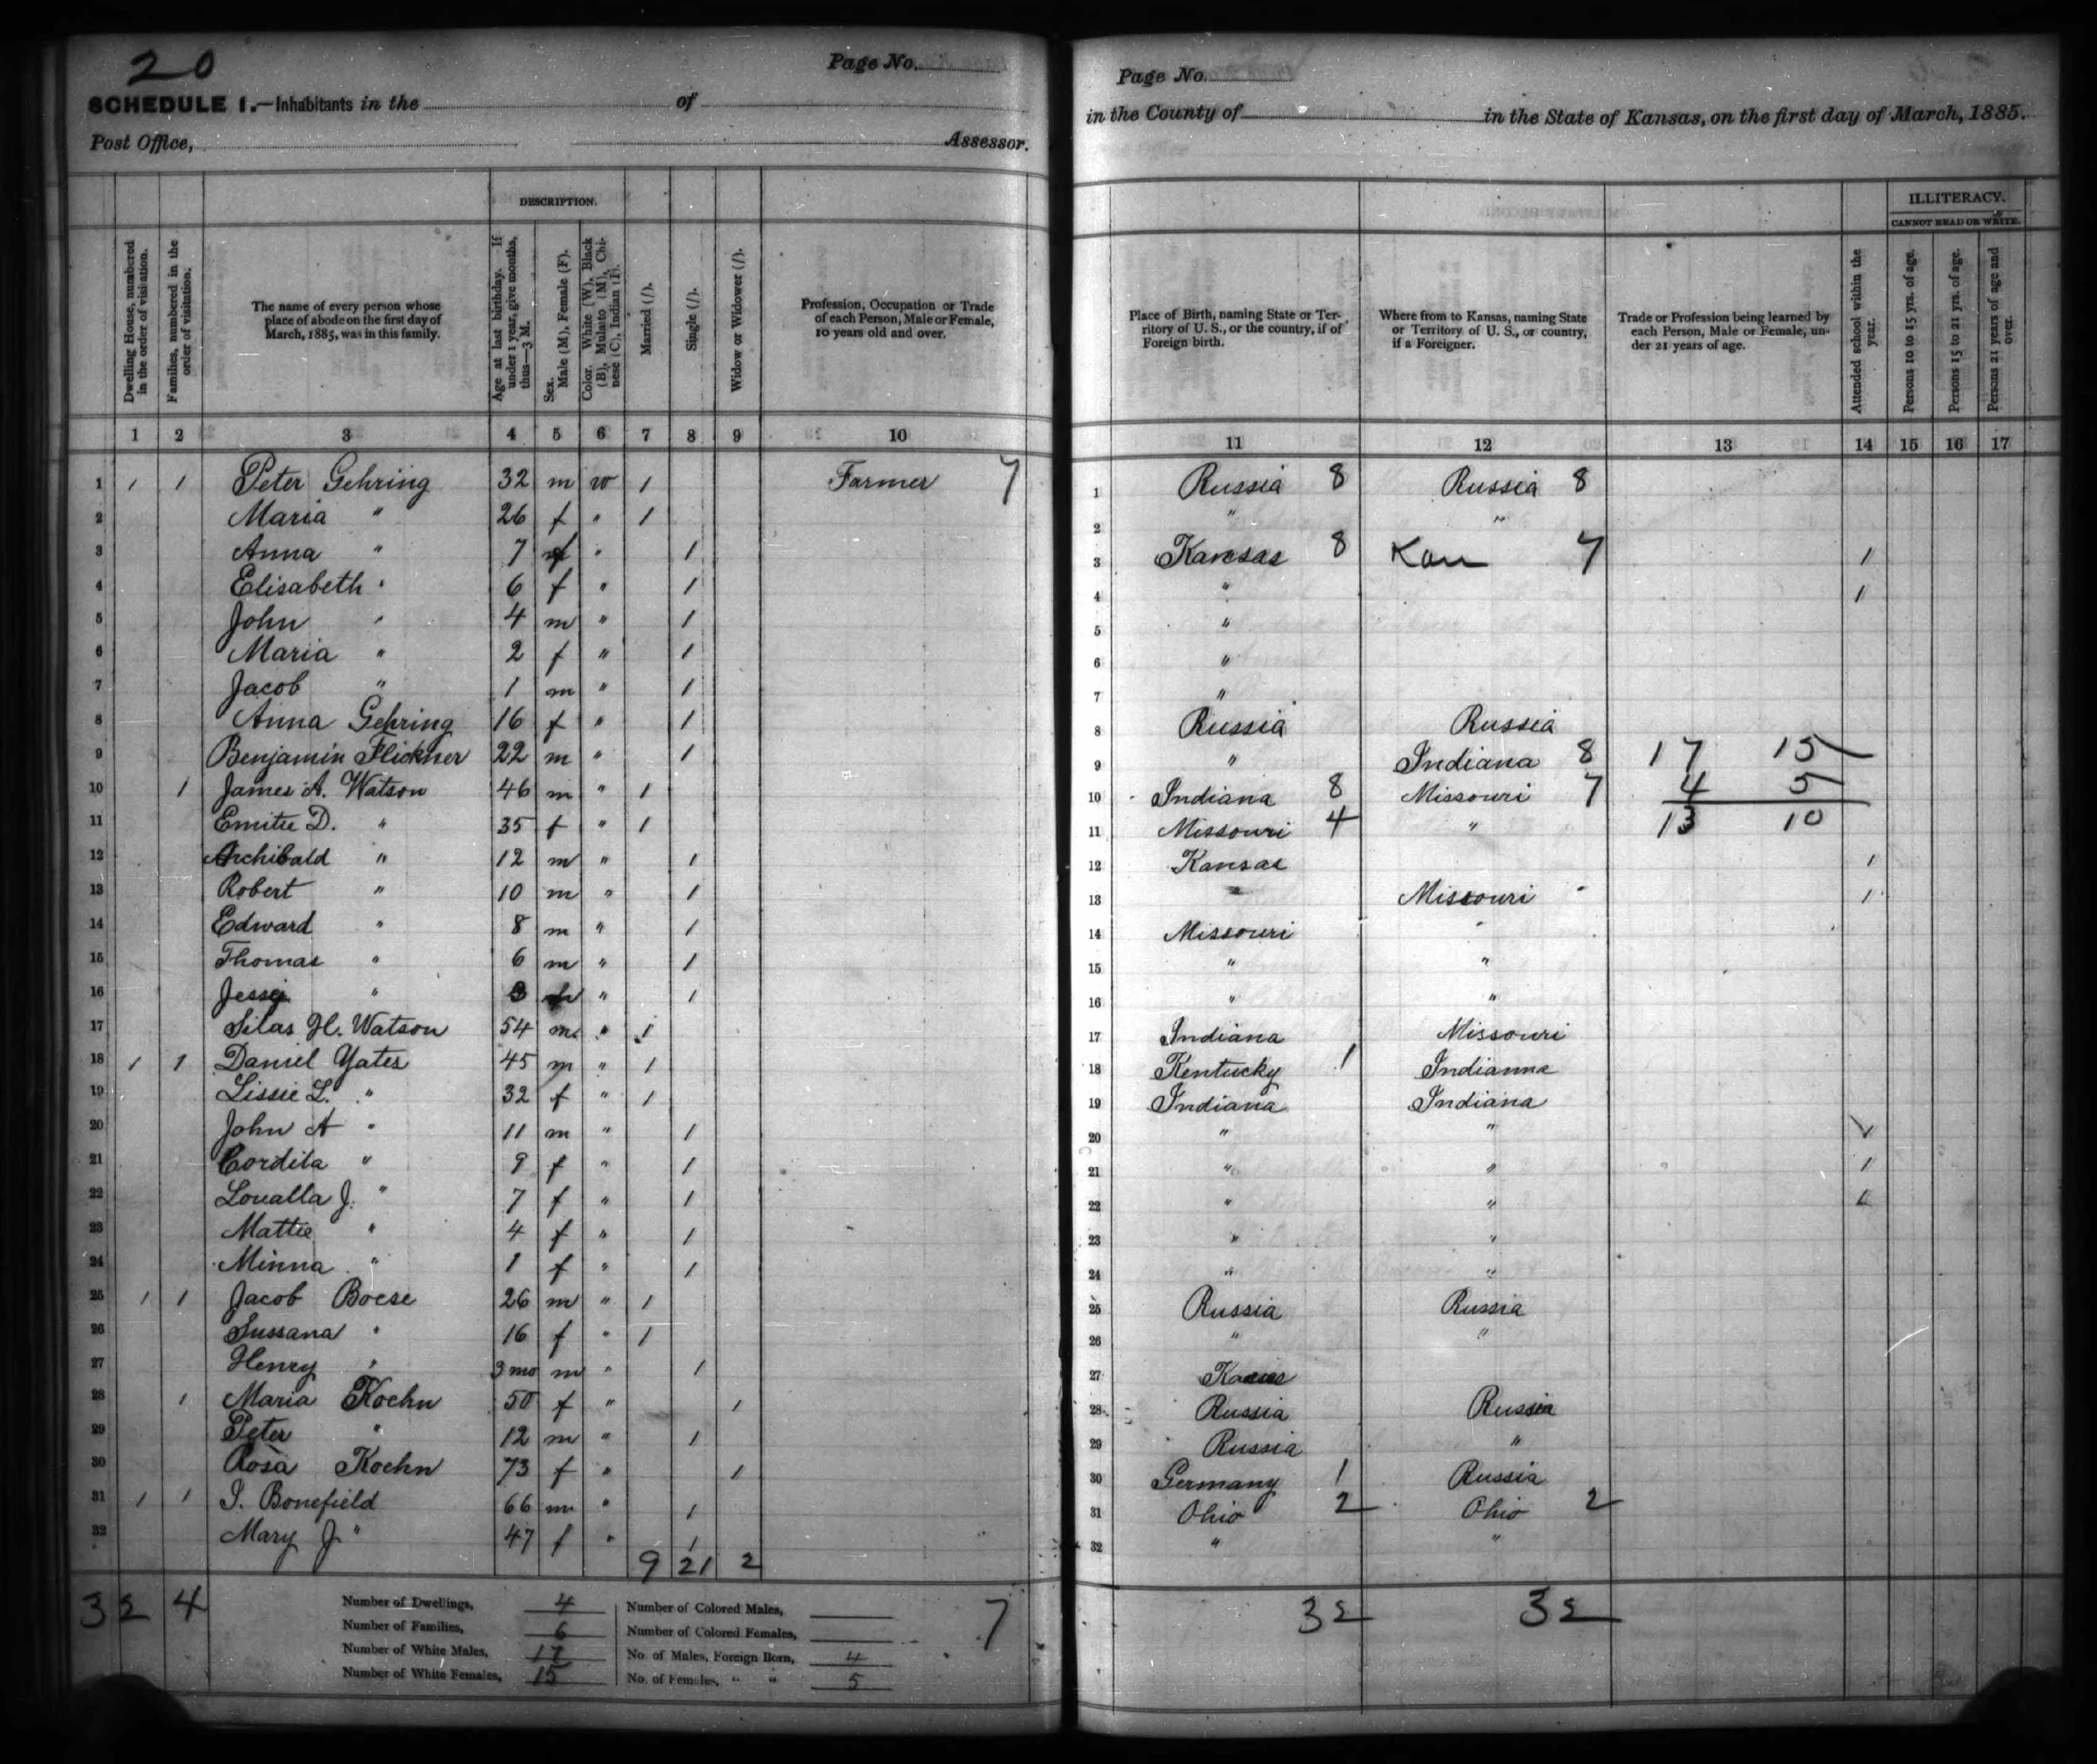 20
Page No.
SCHEDULE 1.—Inhabitants in the of
Post Office, Assessor.
DESCRIPTION.
Dwelling House, numbered in the order of visitation.
Families, numbered in the order of visitation.
The name of every person whose place of abode on the first day of March, 1885, was in this family.
Age at last birthday. If under 1 year, give months, thus—3 M.
Sex. Male (M), Female (F).
Color. White (W), Black (B), Mulatto (M), Chinese (C), Indian (I).
Married (/).
Single (/).
Widow or Widower (/).
Profession, Occupation or Trade of each Person, Male or Female, 10 years old and over.
1 2 3 4 5 6 7 8 9 10
1 / / Peter Gehring 32 m w / Farmer 7
2 Maria " 26 f " /
3 Anna " 7 f " /
4 Elisabeth " 6 f " /
5 John " 4 m " /
6 Maria " 2 f " /
7 Jacob " 1 m " /
8 Anna Gehring 16 f " /
9 Benjamin Flickner 22 m " /
10 / James A. Watson 46 m " /
11 D. " 35 f " /
12 Archibald " 12 m " /
13 Robert " 10 m " /
14 Edward " 8 m " /
15 Thomas " 6 m " /
16 " 3 " /
17 Silas H. Watson 54 m " /
18 / / Daniel Yates 45 m " /
19 Lissie L. " 32 f " /
20 John A " 11 m " /
21 Cordila " 9 f " /
22 Loualla J. " 7 f " /
23 Mattie " 4 f " /
24 Minna " 1 f " /
25 / / Jacob Boese 26 m " /
26 Sussana " 16 f " /
27 Henry " 3 mo m " /
28 / Maria Koehn 50 f " /
29 Peter " 12 m " /
30 Rosa Koehn 73 f " /
31 / / Bonefield 66 m " /
32 Mary J. " 47 f " /
9 21 2
32 4
Number of Dwellings, 4
Number of Families, 6
Number of White Males, 17
Number of White Females, 15
Number of Colored Males,
Number of Colored Females,
No. of Males, Foreign Born, 4
No. of Females, " " 5
7
Page No.
in the County of in the State of Kansas, on the first day of March, 1885.
ILLITERACY.
CANNOT READ OR WRITE.
Place of Birth, naming State or Territory of U. S., or the country, if of Foreign birth.
Where from to Kansas, naming State or Territory of U. S., or country, if a Foreigner.
Trade or Profession being learned by each Person, Male or Female, under 21 years of age.
Attended school within the year.
Persons 10 to 15 yrs. of age.
Persons 15 to 21 yrs. of age.
Persons 21 years of age and over.
11 12 13 14 15 16 17
1 Russia 8 Russia 8
2 " "
3 Kansas 8 Kan 7 /
4 " /
5 "
6 "
7 "
8 Russia Russia
9 " Indiana 8 17 15
10 Indiana 8 Missouri 7 4 5
11 Missouri 4 " 13 10
12 Kansas /
13 " Missouri /
14 Missouri "
15 " "
16 " "
17 Indiana Missouri
18 Kentucky 1 Indianna
19 Indiana Indiana
20 " " /
21 " " /
22 " " /
23 " "
24 " "
25 Russia Russia
26 " "
27
28 Russia Russia
29 Russia "
30 Germany 1 Russia
31 Ohio 2 Ohio 2
32 " "
32 32